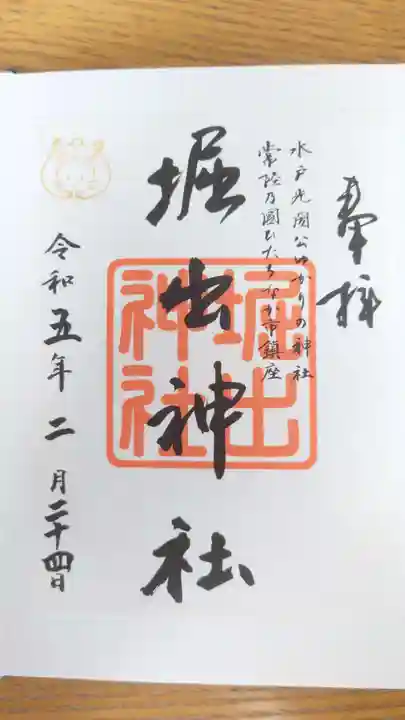 奉拝
水戸光圀公ゆかりの神社
常陸乃國ひたちなか市鎮座
堀出神社
堀出
神社
令和五年二月二十四日